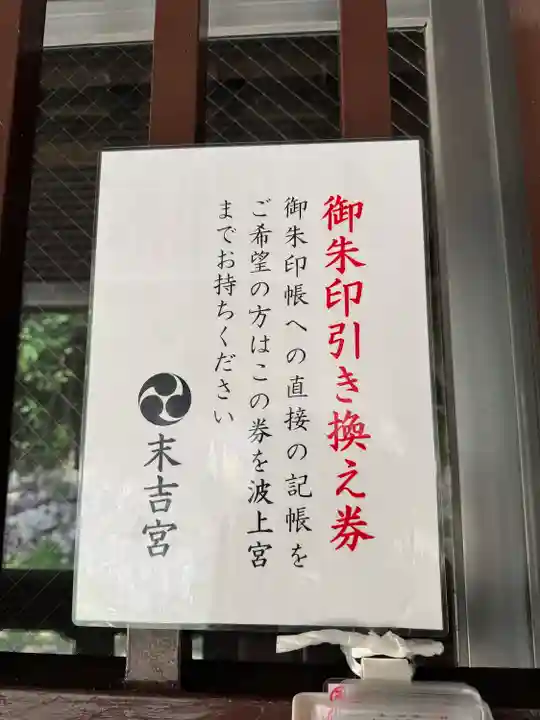 御朱印引き換え券
御朱印帳への直接の記帳を
ご希望の方はこの券を波上宮
までお持ちください
末吉宮